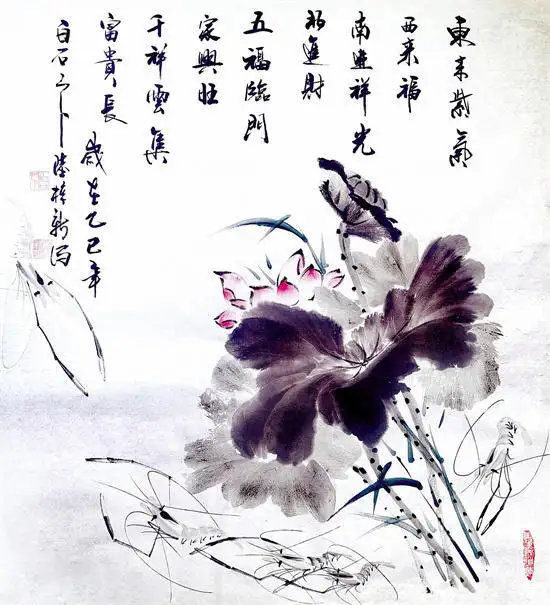 東来紫氣
西来福
南進祥光
北進財
五福臨門
家興旺
千祥雲集
富貴長
歲在乙巳年
白石